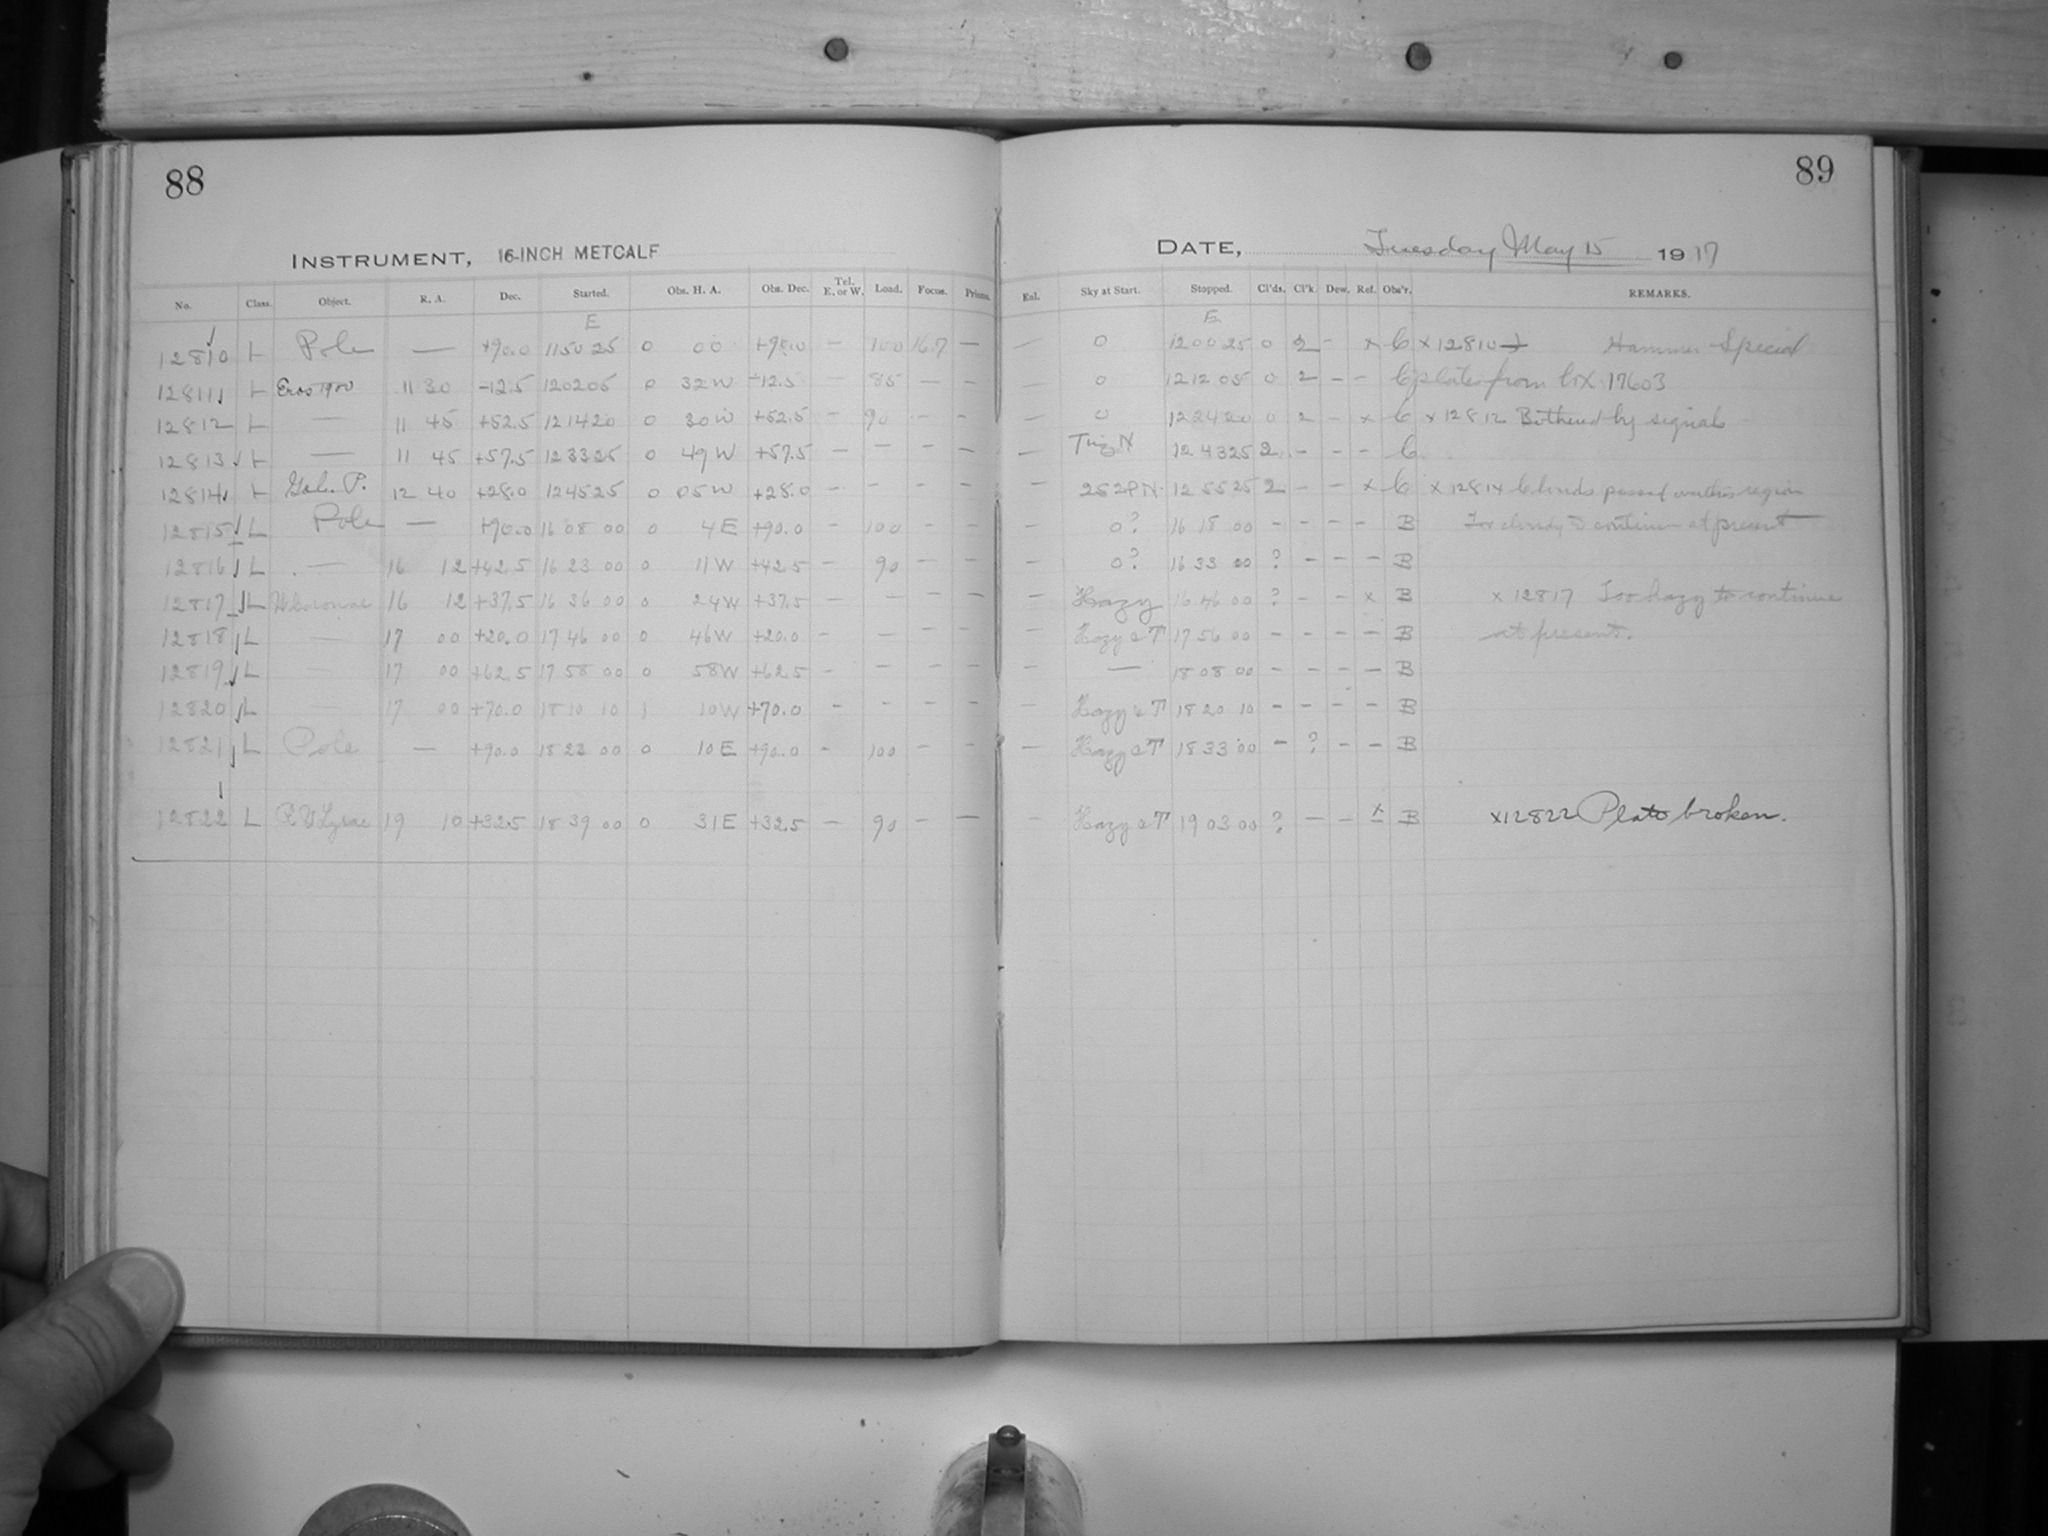 88
INSTRUMENT, 16-INCH METCALF
No. Class. Object. R. A. Dec. Started. Obs. H. A. Obs. Dec. Tel. E. or W. Load. Focus. Prisms.
E
12810 L Pole — +90.0 11 50 25 0 00 +90.0 – 100 16.7 —
12811 L Eros 1900 11 30 –12.5 12 02 05 0 32W –12.5 — 85 — —
12812 L — 11 45 +52.5 12 14 20 0 30W +52.5 – 90 – –
12813 L — 11 45 +57.5 12 33 25 0 49W +57.5 – – – –
12814 L Gal. P. 12 40 +28.0 12 45 25 0 05W +28.0 – – – –
12815 L Pole — +90.0 16 08 00 0 4E +90.0 – 100 – –
12816 L — 16 12 +42.5 16 23 00 0 11W +42.5 – 90 – –
12817 L 16 12 +37.5 16 36 00 0 24W +37.5 – – – –
12818 L — 17 00 +20.0 17 46 00 0 46W +20.0 – – – –
12819 L — 17 00 +62.5 17 58 00 0 58W +62.5 – – – –
12820 L — 17 00 +70.0 18 10 10 1 10W +70.0 – – – –
12821 L Pole — +90.0 18 23 00 0 10E +90.0 – 100 – –
12822 L Lyrae 19 10 +32.5 18 39 00 0 31E +32.5 – 90 – —
89
DATE, Tuesday May 15 1917
Exl. Sky at Start. Stopped. Cl'ds. Cl'k. Dew. Ref. Obs'r. REMARKS.
E
— 0 12 00 25 0 2 – x C x 12810 Hammer Special
0 12 12 05 0 2 – – C plates from box 17603
— 0 12 24 20 0 2 – x C x 12812 Bothered by signals
— N 12 43 25 2 – – – C
– 12 55 25 2 – – x C x 12814 Clouds passed region
– 0? 16 18 00 – – – – B Too cloudy to continue at present
– 0? 16 33 00 ? – – – B
– Hazy 16 46 00 ? – – x B x 12817 Too hazy to continue
– Hazy & T 17 56 00 – – – – B at present.
– — 18 08 00 – – – – B
– Hazy & T 18 20 10 – – – – B
– Hazy & T 18 33 00 – ? – – B
– Hazy & T 19 03 00 ? – – x B x12822 Plate broken.